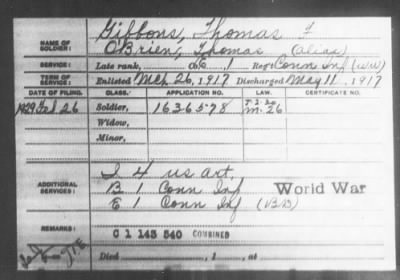 NAME OF SOLDIER: Gibbons, Thomas F
O'Brien, Thomas (alias)
SERVICE: Late rank, 1 Reg't Conn Inf (WW)
TERM OF SERVICE: Enlisted Mch 26, 1917 Discharged May 11, 1917
DATE OF FILING. CLASS. APPLICATION NO. LAW. CERTIFICATE NO.
1929 Feb 26 Soldier, 1636578
Widow,
Minor,
ADDITIONAL SERVICES: I 4 US Art,
B 1 Conn Inf World War
E 1 Conn Inf
REMARKS: C 1 145 540 COMBINED
Died , 1 , at